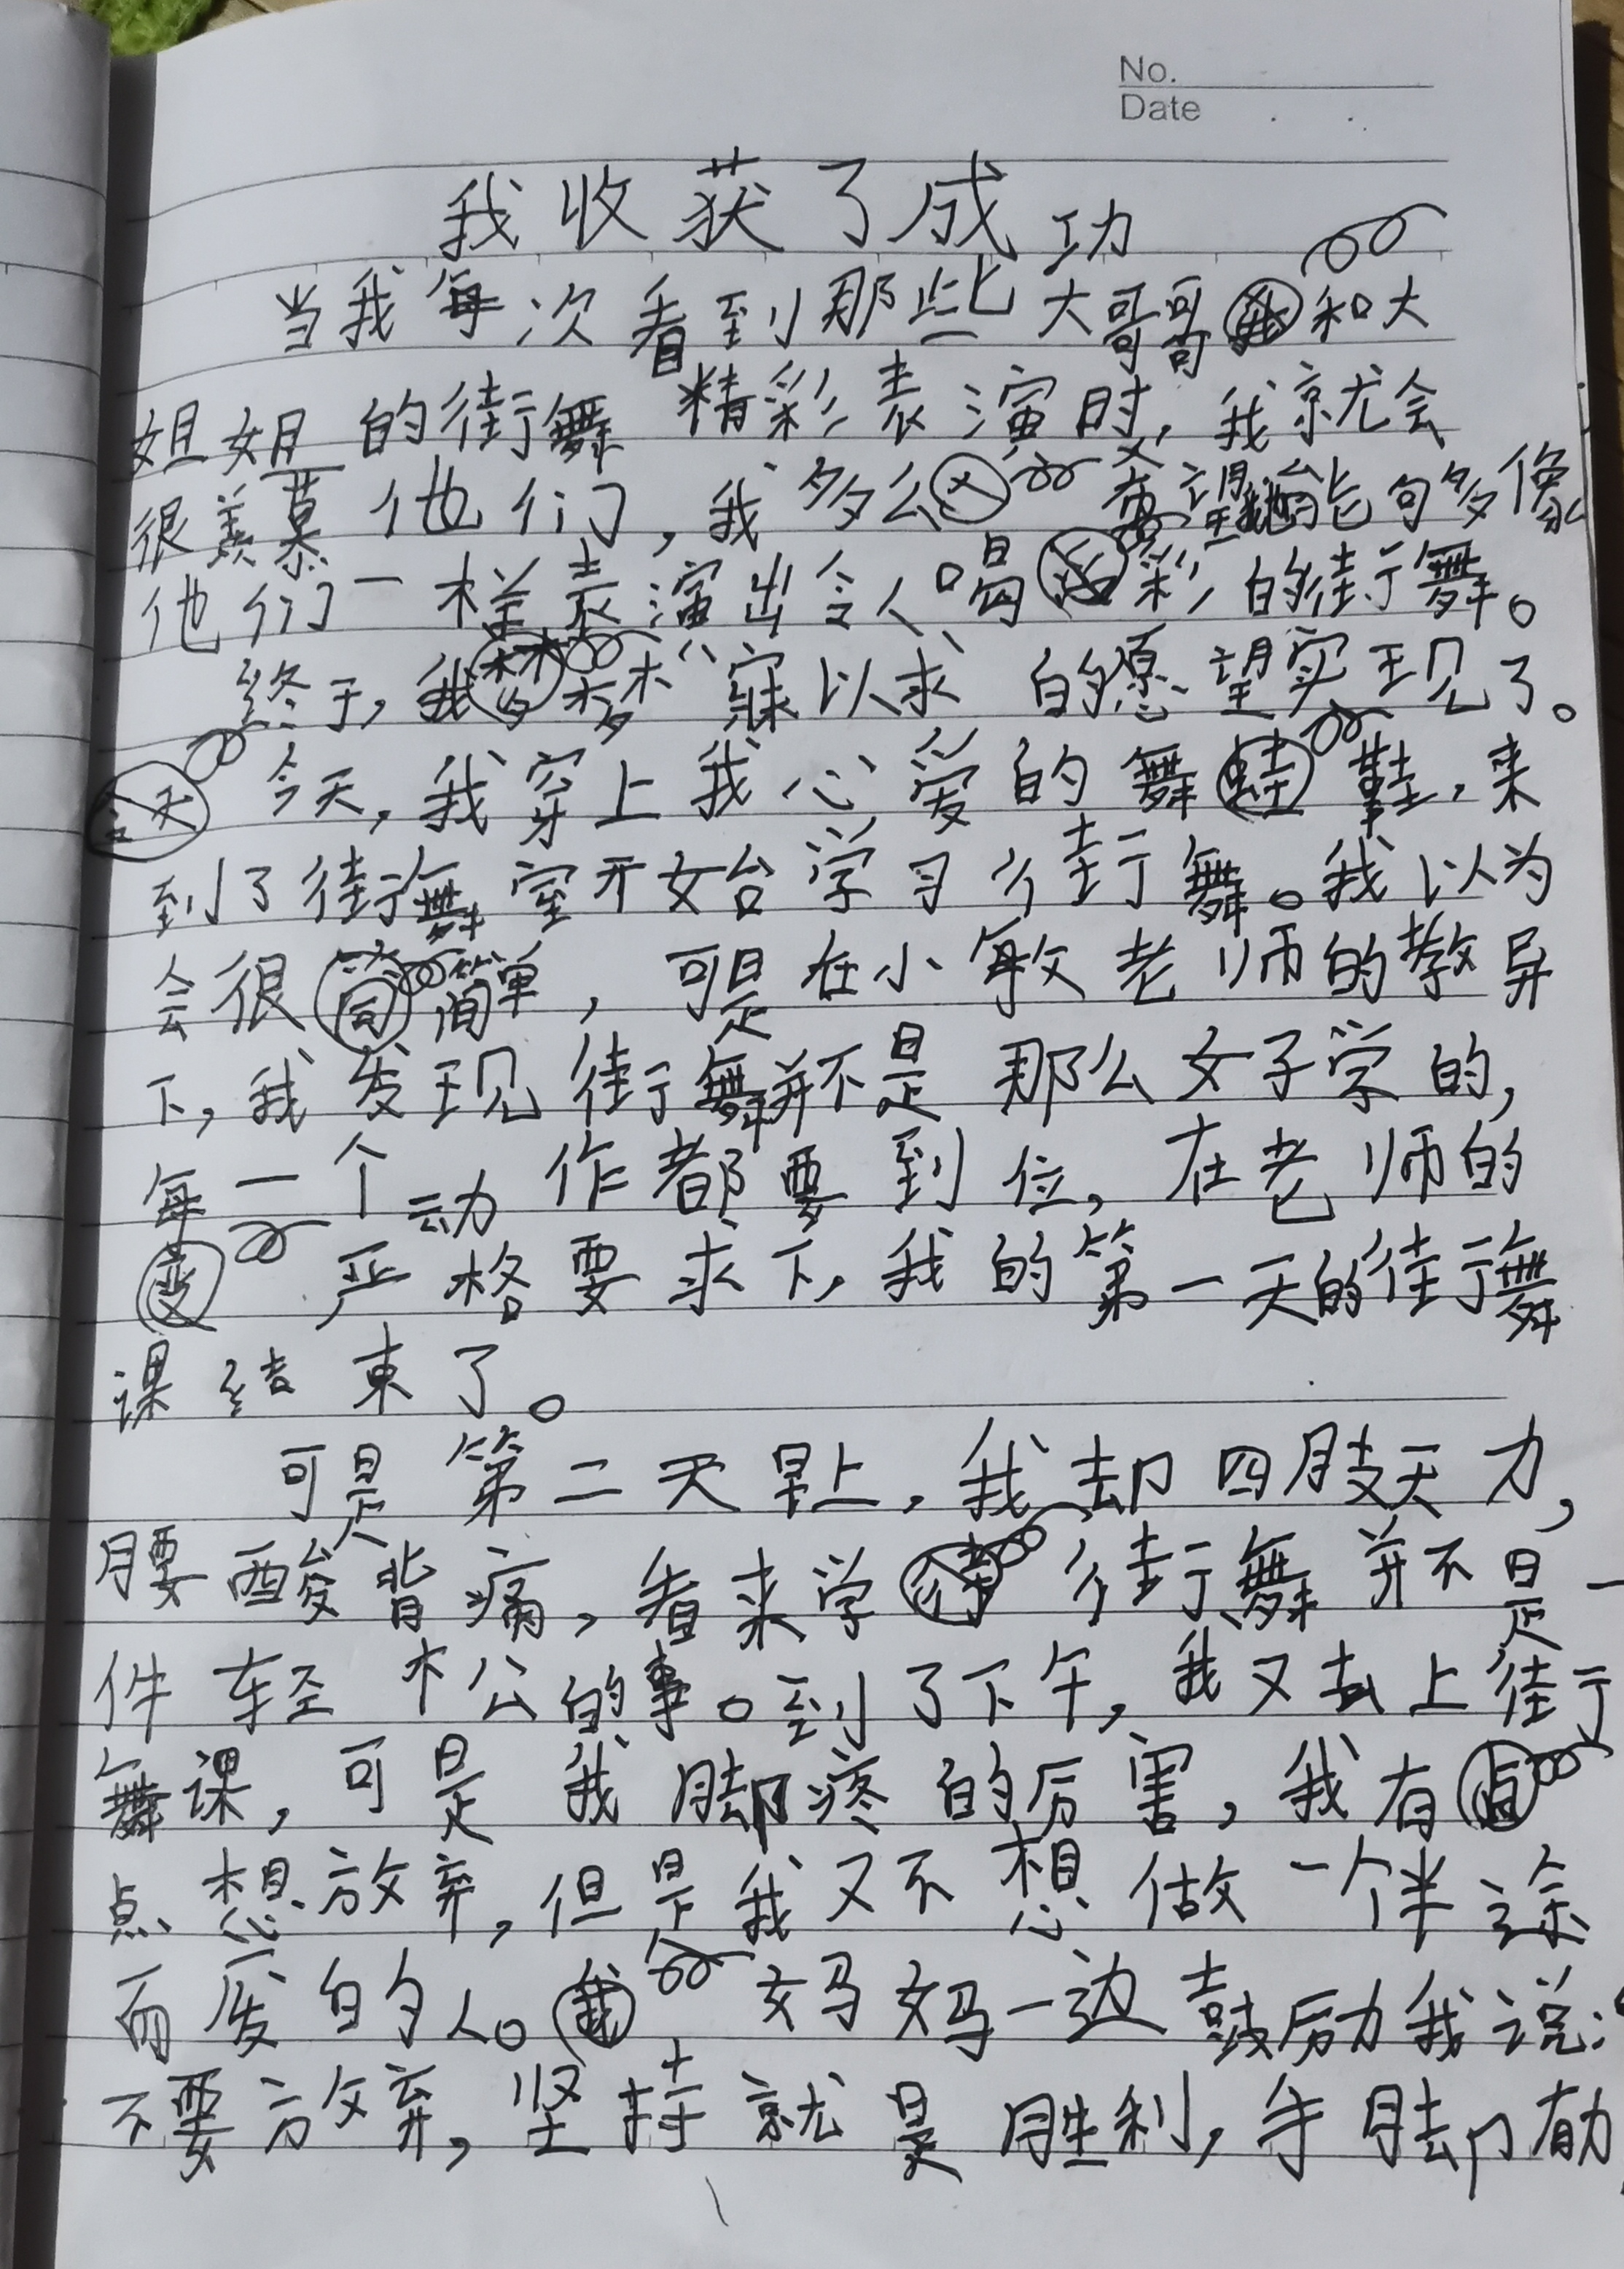 No.
Date
我收获了成功
当我每次看到那些大哥哥和大
姐姐的街舞精彩表演时,我就会
很羡慕他们,我多么希望能句多像
他们一样表演出令人喝彩的街舞。
终于,我梦寐以求的愿望实现了。
今天,我穿上我心爱的舞鞋,来
到了街舞室开始学习街舞。我以为
会很简单,可是在小敏老师的教导
下,我发现街舞并不是那么好学的,
每一个动作都要到位,在老师的
严格要求下,我的第一天的街舞
课结束了。
可是第二天早上,我却四肢无力,
腰酸背痛,看来学街舞并不是一
件轻松的事。到了下午,我又去上街
舞课,可是我脚疼的厉害,我有
点想放弃,但是我又不想做一个半途
而废的人。妈妈一边鼓励我说:“
不要放弃,坚持就是胜利,手脚有力